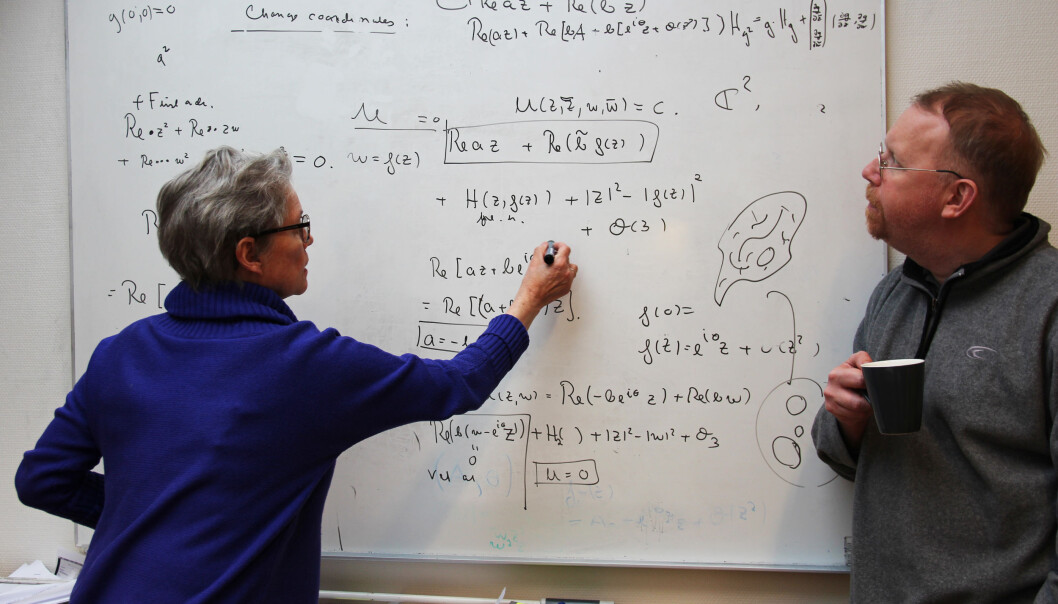 g(0,0)=0
Change coordinates:
Re az + Re(b z)
Re(az) + Re[bA + b[e^{iθ}z + O(z²)]]
H_{g²} = g·H_g +
a²
+ Find a dr.
Re·z² + Re·· zw
+ Re··· w²
= 0. w = f(z)
u = 0
u(z, z̄, w, w̄) = c. ℂ²,
2
Re az + Re(b̃ f(z))
+ H(z, f(z)) + |z|² - |f(z)|²
+ O(3)
Re[az + be^{i
= Re[(a + z].
= Re[
a = -b
f(0)=
f(z) = e^{iθ}z + O(z²)
(z,w) = Re(-be^{iθ} z) + Re(bw)
Re(b(w - e^{iθ}z)) + H₂( ) + |z|² - |w|² + O₃
"
0
u = 0